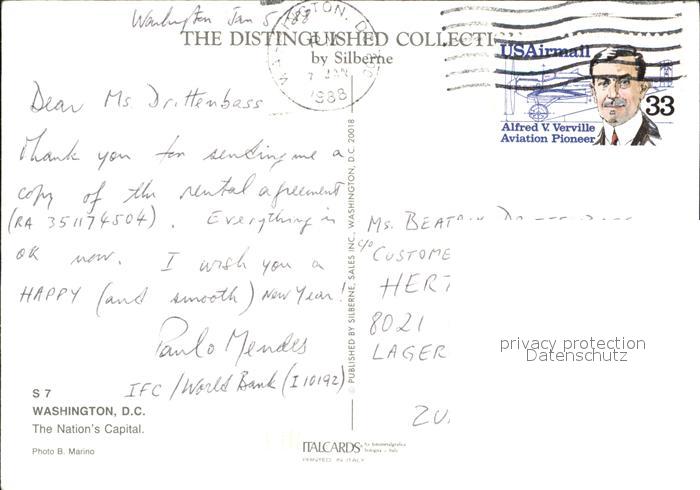 Washington Jan 5, '88
THE DISTINGUISHED COLLECTI
by Silberne
7 JAN
1988
USAirmail
33
Alfred V. Verville
Aviation Pioneer
Dear Ms. Drittenbass
Thank you for sending me a
copy of the rental agreement
(RA 351174504). Everything is
OK now. I wish you a
HAPPY (and smooth) New Year!
Paulo Mendes
IFC/World Bank (I 10192)
S 7
WASHINGTON, D.C.
The Nation's Capital.
Photo B. Marino
PUBLISHED BY SILBERNE, SALES INC., WASHINGTON, D.C. 20018
Ms. BEATRIX
c/o CUSTOME
HERT
8021
LAGER
privacy protection
Datenschutz
ITALCARDS
bologna - italy
PRINTED IN ITALY